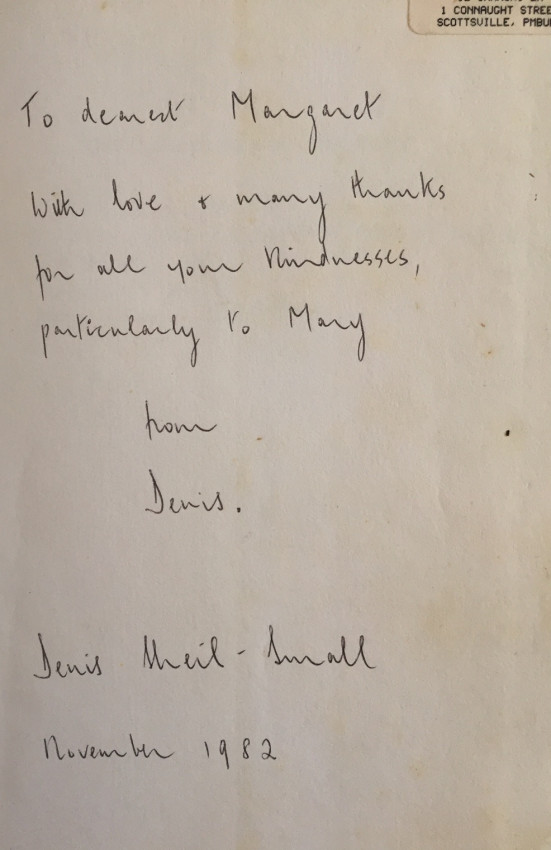 1 CONNAUGHT STREE
SCOTTSVILLE, PMBU
To dearest Margaret
With love + many thanks
for all your kindnesses,
particularly to Mary
from
Denis.
Denis Sheil-Small
November 1982